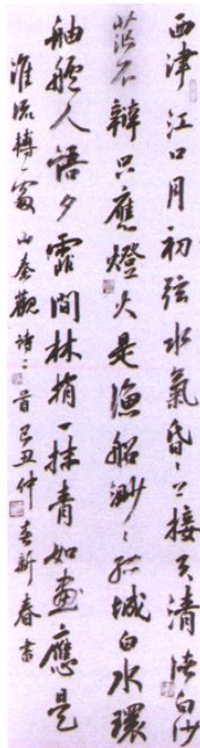 西津江口月初弦水氣昏〻上接天清渚白沙
茫不辨只應燈火是漁船渺〻孤城白水環
舳艫人語夕霏間林梢一抹青如畫應是
淮流轉處山秦觀詩二首己丑仲春新春書